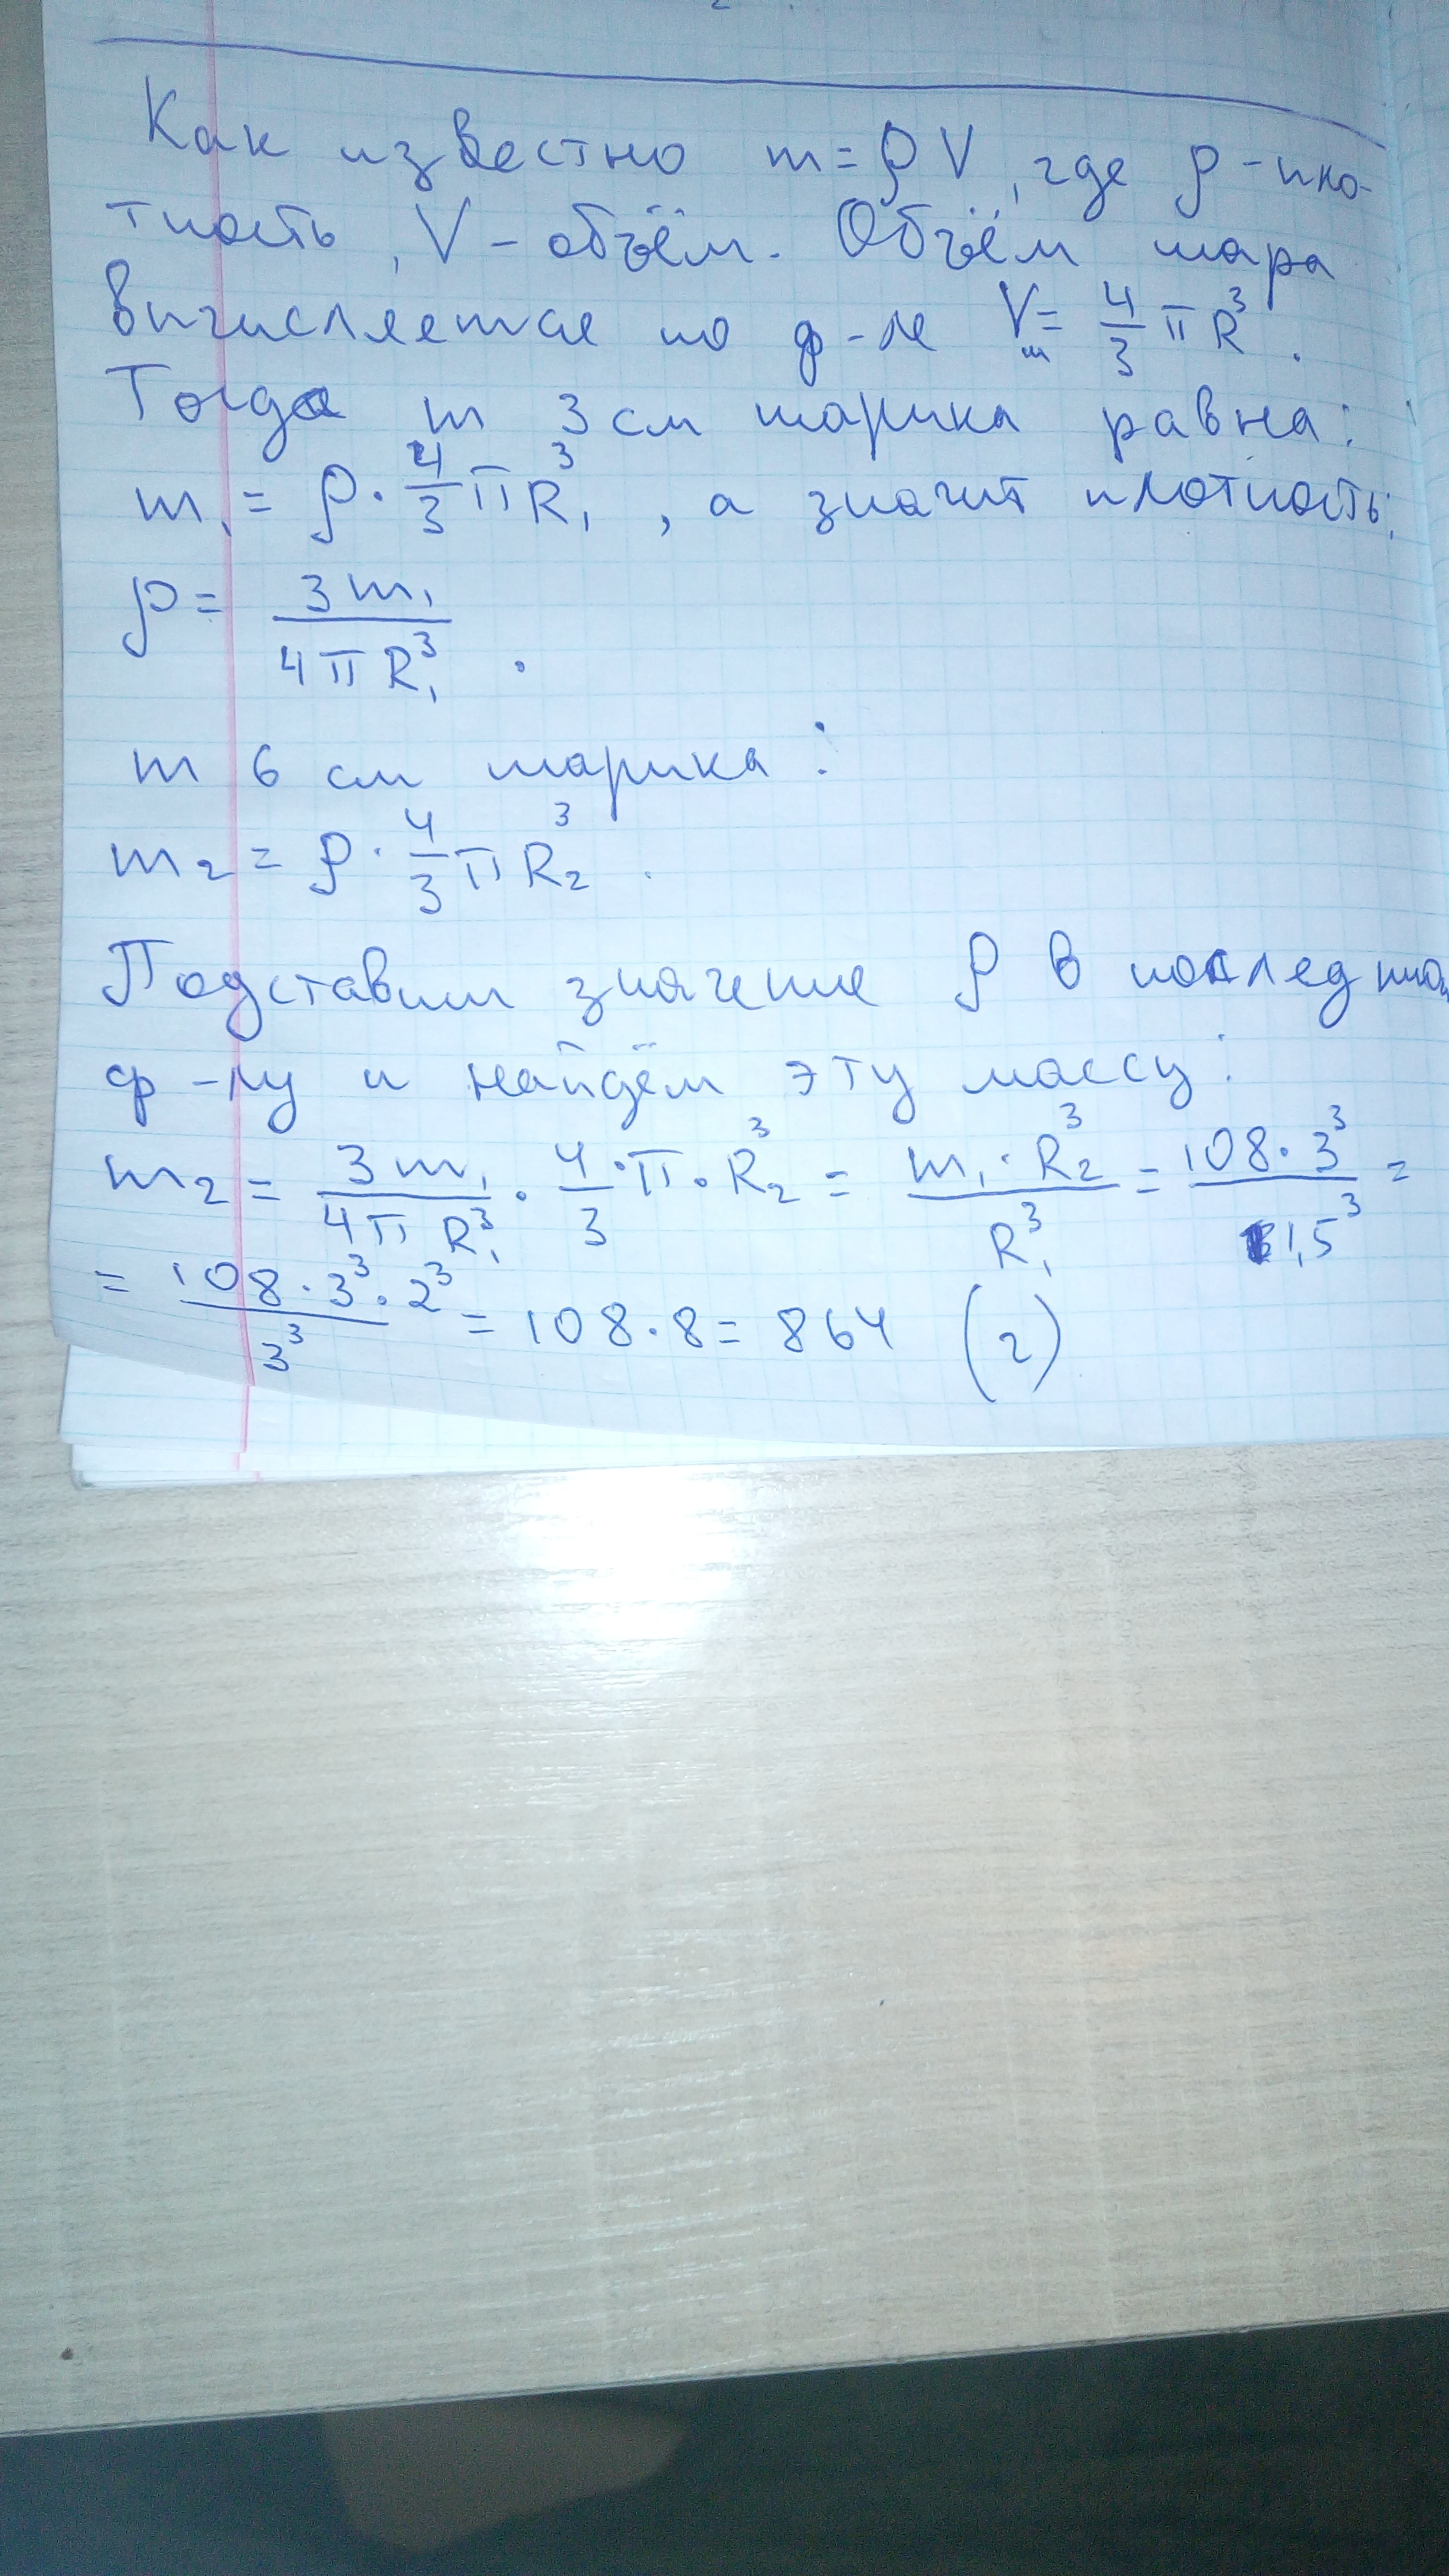 Как известно m = ρV, где ρ - пло-
тность, V - объём. Объём шара
вычисляется по ф-ле Vш = 4/3 πR³.
Тогда m 3 см шарика равна:
m₁ = ρ · 4/3 πR₁³, а значит плотность:
ρ = 3m₁ / 4πR₁³.
m 6 см шарика:
m₂ = ρ · 4/3 πR₂³.
Подставим значение ρ в последнюю
ф-лу и найдём эту массу:
m₂ = 3m₁ / 4πR₁³ · 4/3 · π · R₂³ = m₁ · R₂³ / R₁³ = 108 · 3³ / 1,5³ =
= 108 · 3³ · 2³ / 3³ = 108 · 8 = 864 (г)